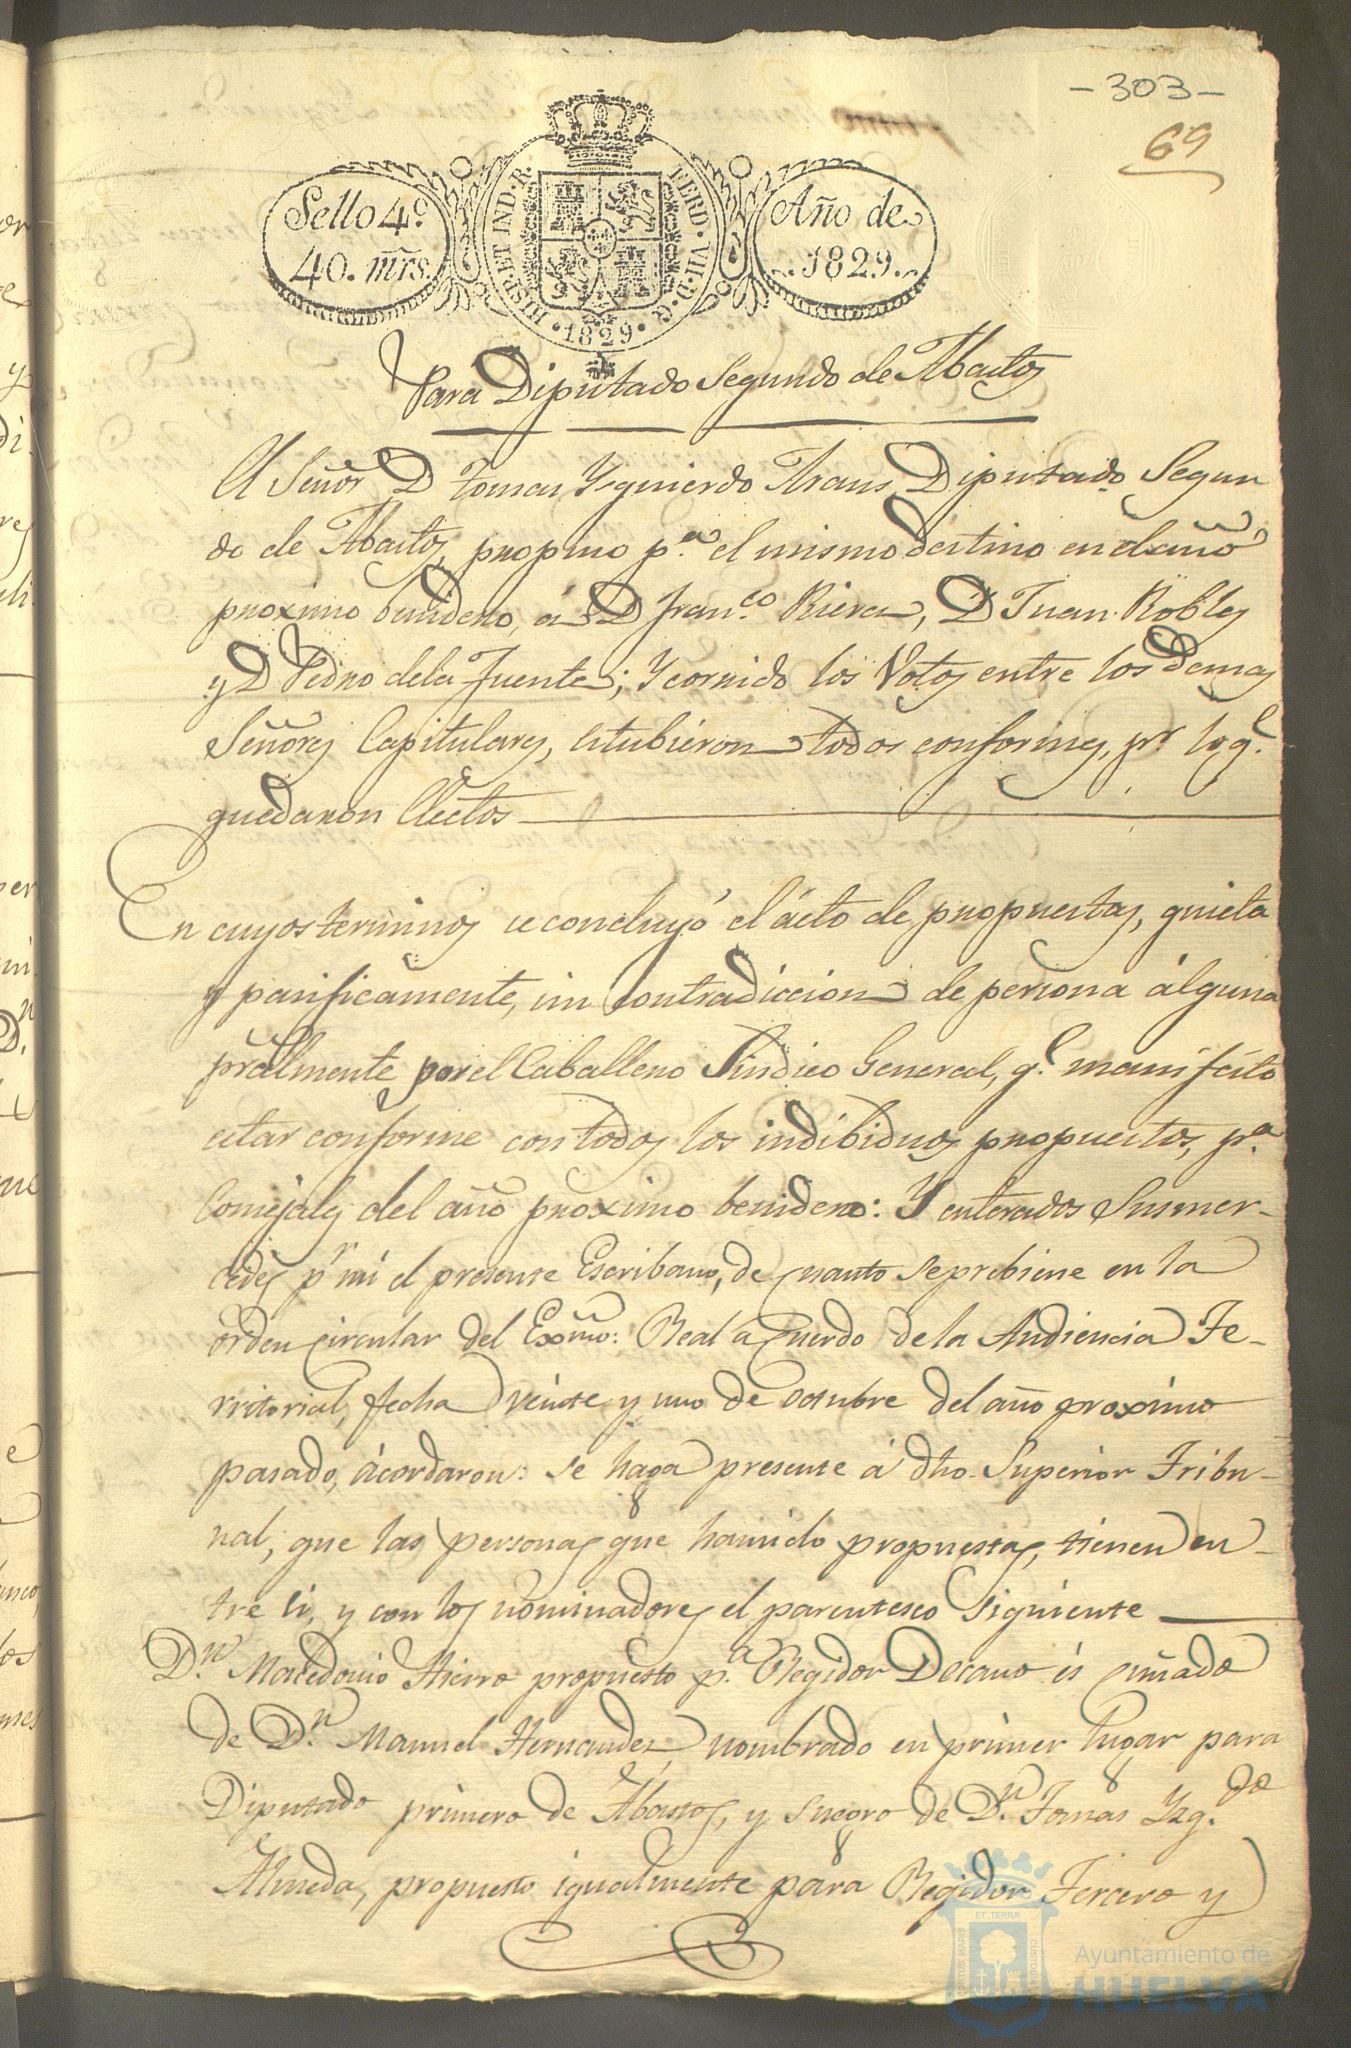 -303-
69
Sello 4º
40. mrs.
HISP. ET IND. R. FERD. VII. D. G.
·1829·
Año de
1829.
Para Diputado Segundo de Abastos
El Señor D Tomas Ysquierdo Arans Diputado Segun
do de Abastos, propuso pª el mismo destino en el año
proximo benidero, á D Franco Riera, D Juan Robles
y D Pedro dela Fuente; Y corrido los Votos entre los demas
Señores Capitulares, estubieron todos conformes, pr lo q.e
quedaron Electos
En cuyos terminos se concluyó el ácto de propuestas, quieta
y pacificamente, sin contradiccion de persona álguna
pralmente por el Caballero Sindico General, q.e manifestó
estar conforme con todos los indibiduos propuestos, pª
Consejales del año proximo benidero: Y enterados Susmer-
cedes pr mi el presente Escribano, de cuanto se prebiene en la
orden circular del Exmo: Real acuerdo de la Audiencia Te-
rritorial, fecha veinte y uno de octubre del año proximo
pasado, ácordaron: se haga presente á dho. Superior Tribu-
nal, que las personas que han sido propuestas, tienen en-
tre si, y con los nominadores el parentesco siguiente
D.n Macedonio Hierro propuesto p.a Regidor Decano és cuñado
de D.n Manuel Hernandez nombrado en primer lugar para
Diputado primero de Abastos, y suegro de D.n Tomas Yzq.do
Almeda, propuesto igualmente para Regidor Tercero y
PORTUS MARIS ET TERRÆ CUSTODIA
Ayuntamiento de
HUELVA